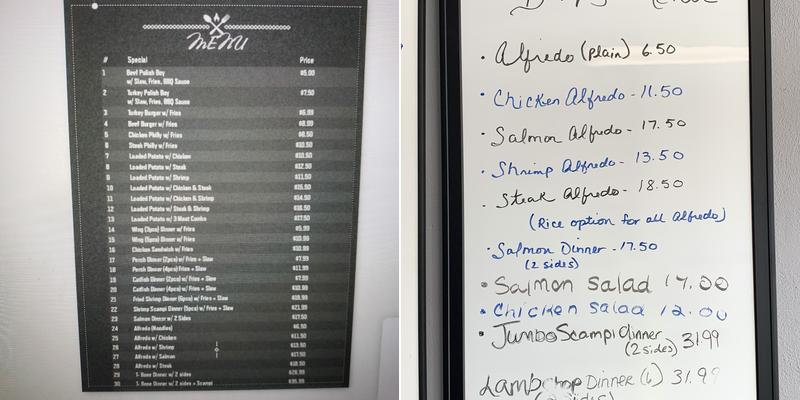 MENU
# Special Price
1 Beef Polish Boy $5.00
w/ Slaw, Fries, BBQ Sauce
2 Turkey Polish Boy $7.50
w/ Slaw, Fries, BBQ Sauce
3 Turkey Burger w/ Fries $6.99
4 Beef Burger w/ Fries $8.99
5 Chicken Philly w/ Fries $8.50
6 Steak Philly w/ Fries $10.50
7 Loaded Potato w/ Chicken $10.50
8 Loaded Potato w/ Steak $12.50
9 Loaded Potato w/ Shrimp $11.50
10 Loaded Potato w/ Chicken & Steak $15.50
11 Loaded Potato w/ Chicken & Shrimp $14.50
12 Loaded Potato w/ Steak & Shrimp $16.50
13 Loaded Potato w/ 3 Meat Combo $17.50
14 Wing (3pcs) Dinner w/ Fries $5.99
15 Wing (6pcs) Dinner w/ Fries $10.99
16 Chicken Sandwich w/ Fries $10.99
17 Perch Dinner (2pcs) w/ Fries + Slaw $7.99
18 Perch Dinner (4pcs) w/ Fries + Slaw $11.99
19 Catfish Dinner (2pcs) w/ Fries + Slaw $7.99
20 Catfish Dinner (4pcs) w/ Fries + Slaw $10.99
21 Fried Shrimp Dinner (6pcs) w/ Fries + Slaw $19.99
22 Shrimp Scampi Dinner (5pcs) w/ Fries + Slaw $21.99
23 Salmon Dinner w/ 2 Sides $17.50
24 Alfredo (Noodles) $6.50
25 Alfredo w/ Chicken $11.50
26 Alfredo w/ Shrimp $13.50
27 Alfredo w/ Salmon $17.50
28 Alfredo w/ Steak $18.50
29 T- Bone Dinner w/ 2 sides $29.99
30 T- Bone Dinner w/ 2 sides + Scampi $35.99
• Alfredo (Plain) 6.50
• Chicken Alfredo - 11.50
• Salmon Alfredo - 17.50
• Shrimp Alfredo - 13.50
• Steak Alfredo - 18.50
(Rice option for all Alfredo)
• Salmon Dinner - 17.50
(2 sides)
• Salmon salad 17.00
• Chicken salad 12.00
• Jumbo Scampi dinner
(2 sides) 31.99
Lambchop Dinner (6) 31.99